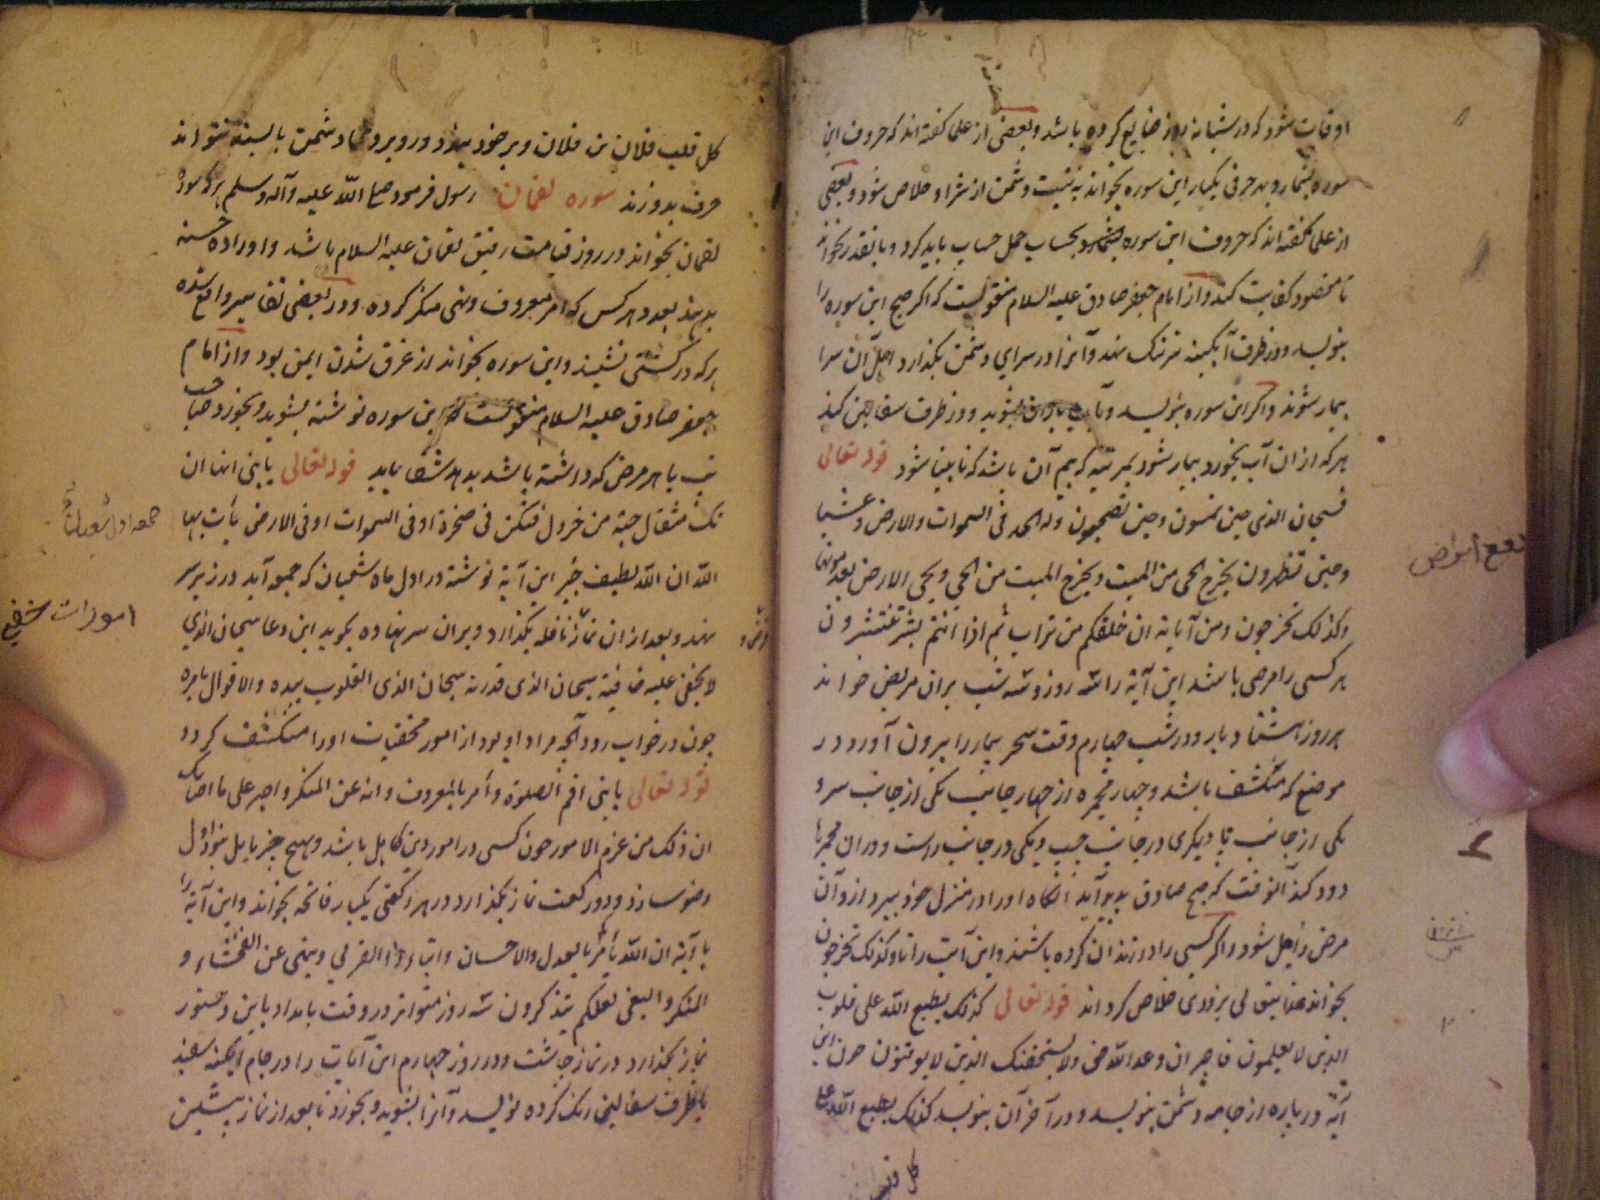 اوقات شود که در شبانه روز ضایع کرده باشد و بعضی از علما گفته اند که حروف این
سوره بشمارد بهر حرفی یکبار این سوره بخواند به نیت دشمن از شر او خلاص شود و بعضی
از علما گفته اند که حروف این سوره بحساب جمل حساب باید کرد و بانقدر بخواند
تا مقصود کفایت کند و از امام جعفر صادق علیه السلام منقولست که اگر صبح این سوره را
بنویسد و در ظرف آبگینه سرتنگ نهد و آنرا در سرای دشمن بگذارد اهل آن سرا
بیمار شوند و اگر این سوره بنویسد و بآب باران بشوید و در ظرف سفالین کند
هر که از ان آب بخورد بیمار شود بمرتبه که بیم آن باشد که نابینا شود قوله تعالی
فسبحان الذی حین تمسون وحین تصبحون وله الحمد فی السموات والارض وعشیا
وحین تظهرون یخرج الحی من المیت ویخرج المیت من الحی ویحی الارض بعد موتها
وکذلک تخرجون ومن آیاته ان خلقکم من تراب ثم اذا انتم بشر تنتشرون
هر کسی را مرضی باشد این آیة را سه روز و سه شب بران مریض خواند
هر روز هشتاد بار و در شب چهارم وقت سحر بیمار را بیرون آورد در
موضع که منکشف باشد و چهار مجمره از چهار جانب یکی از جانب سر و
یکی از جانب پا و یکری در جانب چپ و یکی در جانب راست و در ان مجمرها
دود کند آنوقت که صبح صادق بدید آید انگاه او را در منزل خود ببرد از و آن
مرض زایل شود و اگر کسی را در زندان کرده باشند و این آیت را تا وکذلک تخرجون
بخواند خدایتعالی بزودی خلاص گرداند قوله تعالی کذلک یطبع الله علی قلوب
الذین لا یعلمون فاصبر ان وعد الله حق ولا یستخفنک الذین لا یوقنون حرف این
آیة در پاره از جامه دشمن بنویسد و در آخر آن بنویسد کذلک یطبع الله علی
کل قلب
دفع امراض
کل قلب فلان بن فلان و بر خود بندد و روبرو دشمن بالسنه نتواند
حرف بدو زند سوره لقمان رسول فرمود صلی الله علیه وآله وسلم هر که سوره
لقمان بخواند در روز قیامت رفیق لقمان علیه السلام باشد و او را ده حسنه
بدهند بعدد هر کس که امر معروف و نهی منکر کرده و در بعضی تفاسیر واقع شده
هر که در کشتی نشیند و این سوره بخواند از غرق شدن ایمن بود و از امام
جعفر صادق علیه السلام منقولست که این سوره نوشته بشوید و بخورد صاحب
تب یا هر مرض که داشته باشد بدهد شفا یابد قوله تعالی یابنی انها ان
تک مثقال حبة من خردل فتکن فی صخرة او فی السموات او فی الارض یأت بها
الله ان الله لطیف خبیر این آیة نوشته در اول ماه شعبان که جمعه آید در زیر سر
نهد و بعد از ان نماز نافله بگذارد و بران سر نهاده بگوید این دعا سبحان الذی
لا یخفی علیه خافیة سبحان الذی قدرته سبحان الذی القلوب بیده والاقوال بامره
چون در خواب رود آنچه مراد او بود از امور مخفیات او را منکشف گردد
قوله تعالی یابنی اقم الصلوة وأمر بالمعروف وانه عن المنکر واصبر علی ما اصابک
ان ذلک من عزم الامور چون کسی در امور دین کاهل باشد و بهیچ چیز مایل نبود اول
وضو سازد و دو رکعت نماز بگذارد در هر رکعتی یکبار فاتحه بخواند و این آیه را
با آیة ان الله یأمر بالعدل والاحسان وایتاء ذا القربی وینهی عن الفحشاء و
المنکر والبغی لعلکم تتذکرون سه روز متواتر در وقت بامداد باین دستور
نماز بگذارد در نماز چاشت و در روز چهارم این آیات را در جام آبگینه سفید
یا ظرف سفالین رنک کرده نویسد و آنرا بشوید و بخورد تا بعد از نماز پیشین
جمعه اول شعبان
امورات خفیه